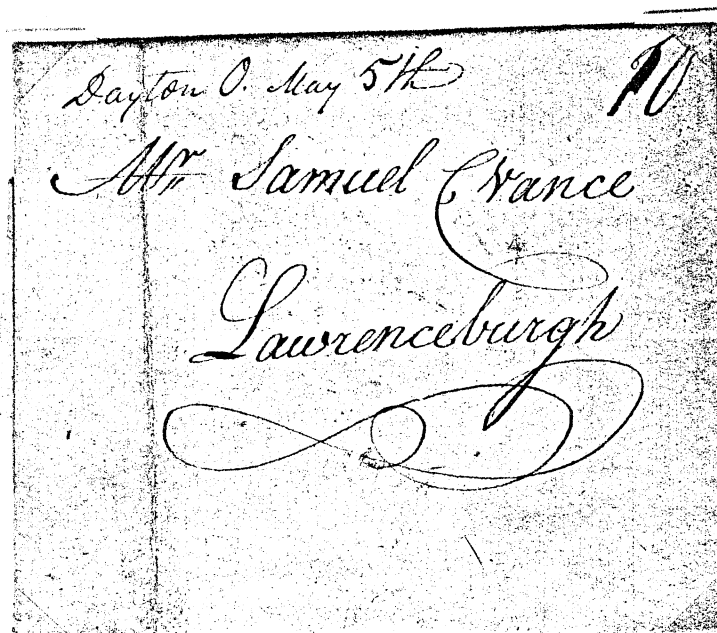 Dayton O. May 5th 10
Mr Samuel C Vance
Lawrenceburgh